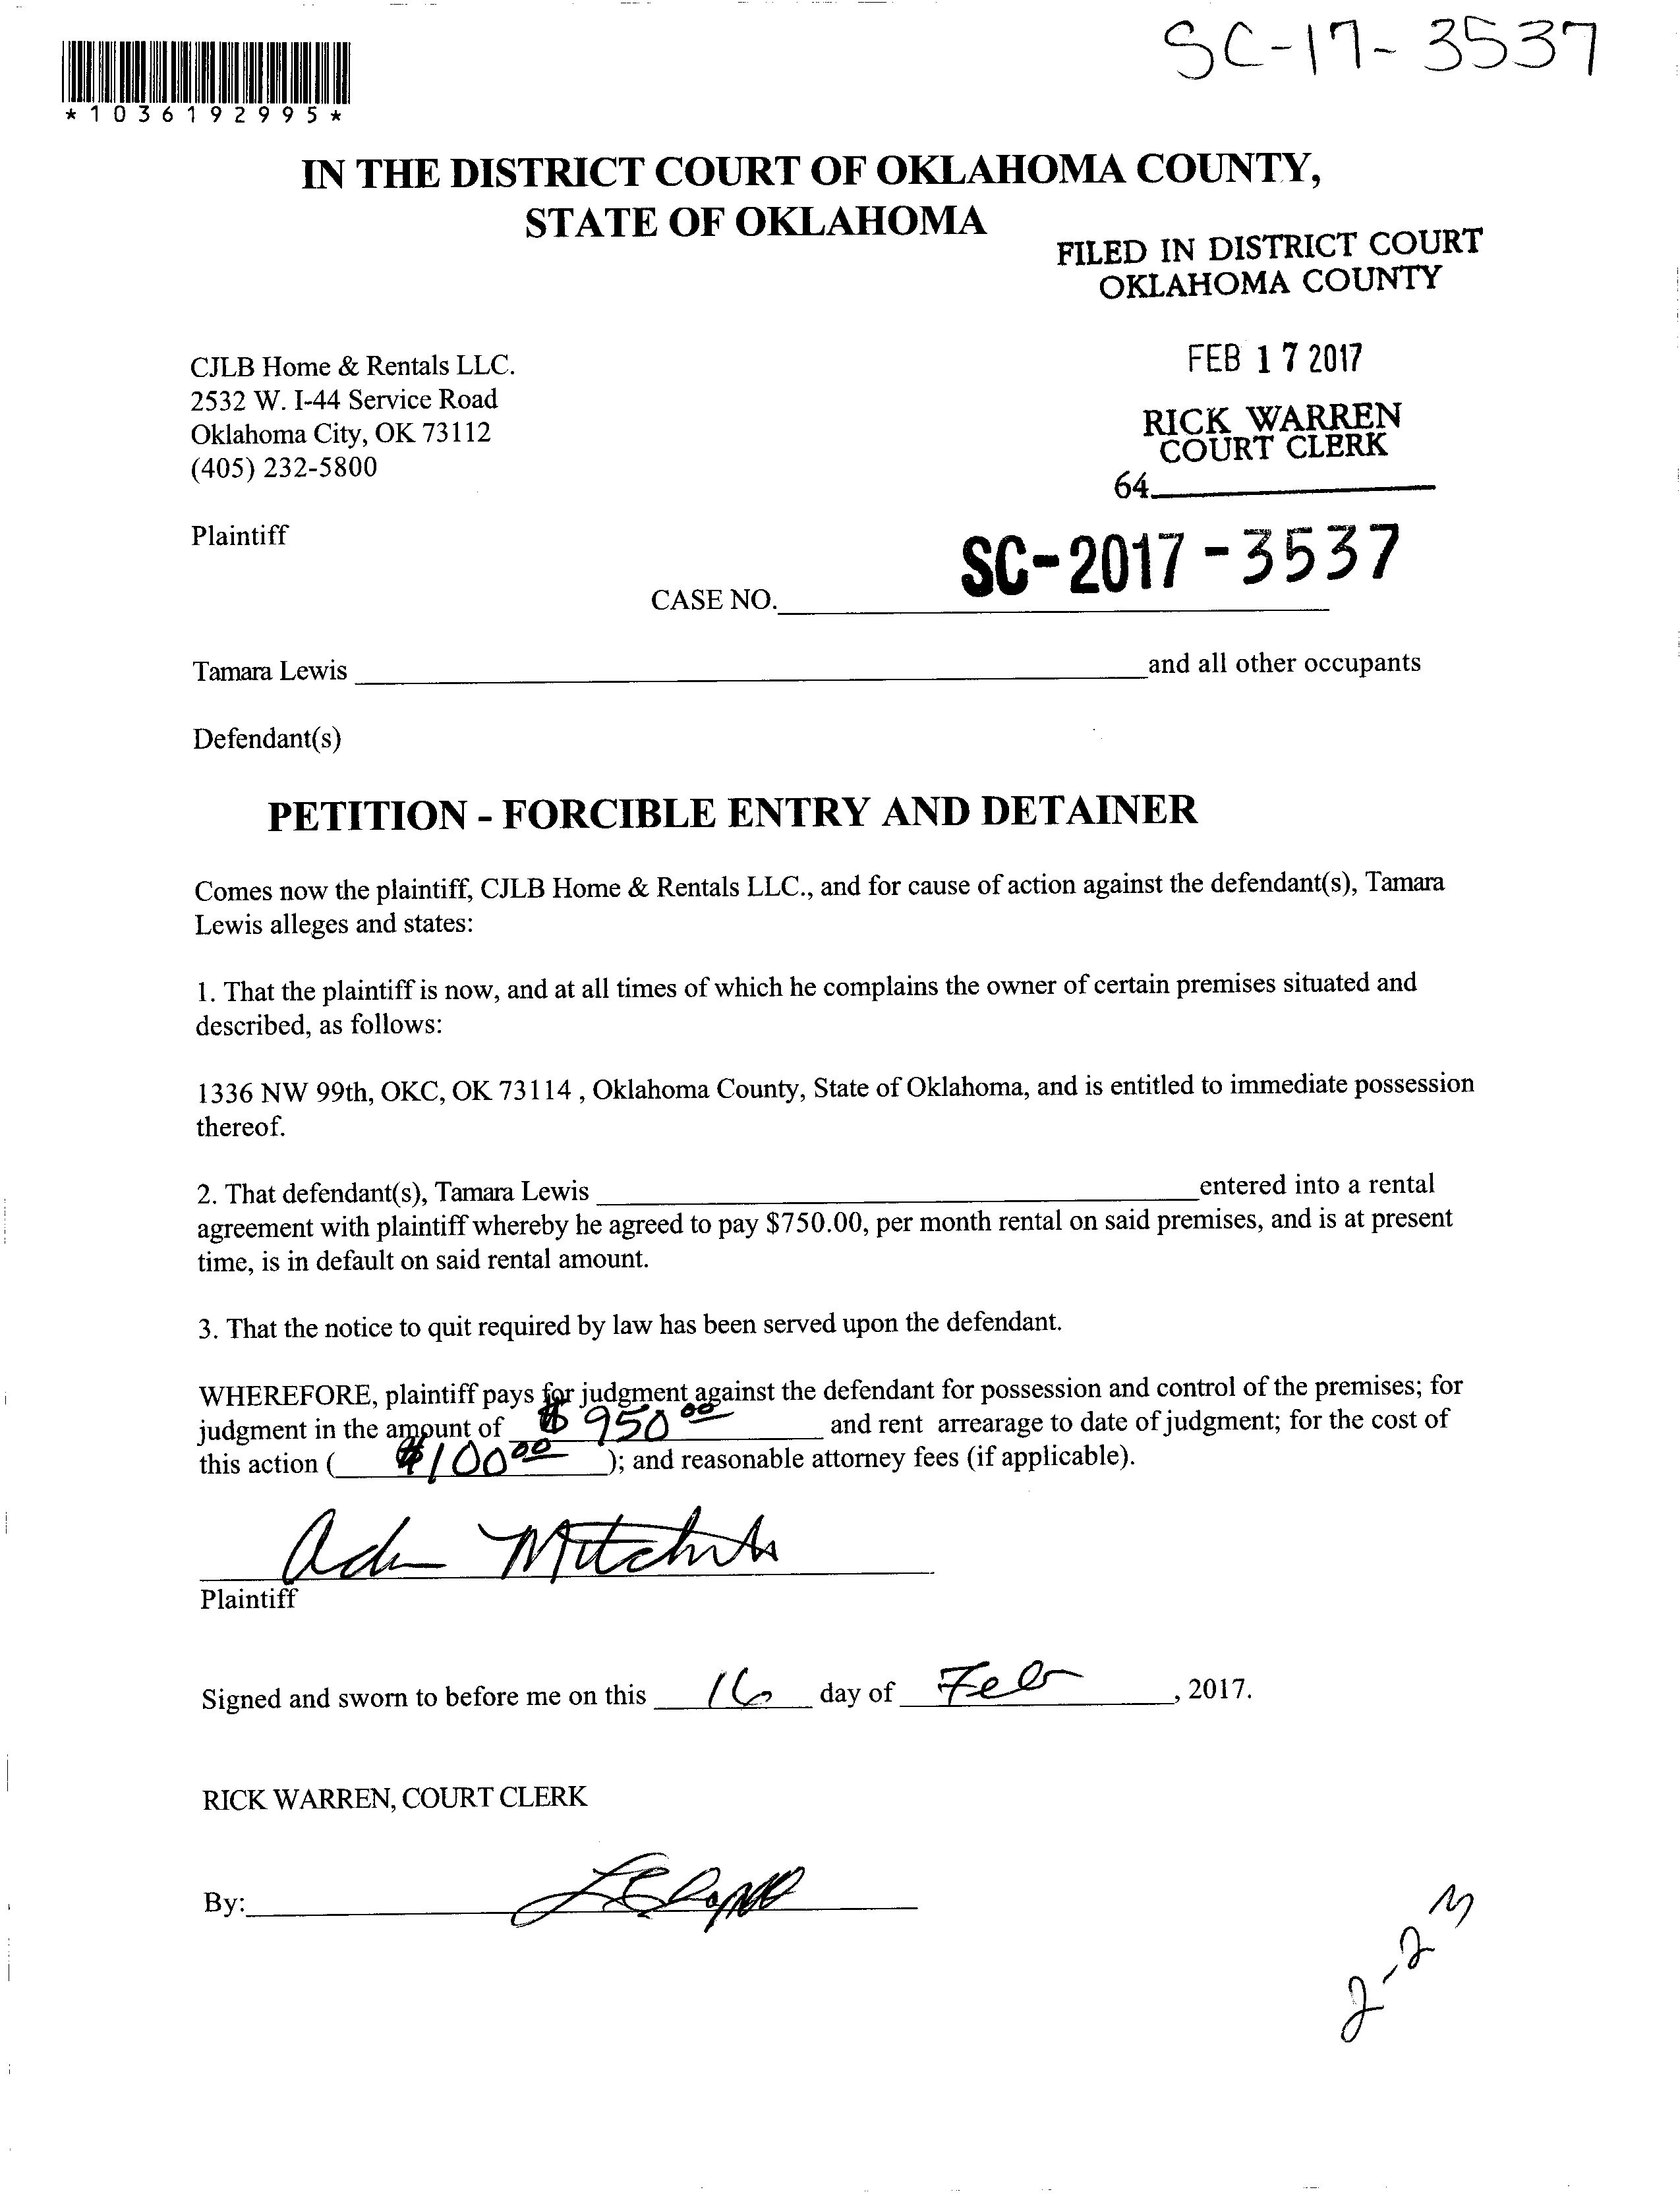 SC-17-3537
*1036192995*
IN THE DISTRICT COURT OF OKLAHOMA COUNTY,
STATE OF OKLAHOMA
FILED IN DISTRICT COURT
OKLAHOMA COUNTY
FEB 17 2017
RICK WARREN
COURT CLERK
64
CJLB Home & Rentals LLC.
2532 W. I-44 Service Road
Oklahoma City, OK 73112
(405) 232-5800
Plaintiff
SC-2017-3537
CASE NO.
Tamara Lewis and all other occupants
Defendant(s)
PETITION - FORCIBLE ENTRY AND DETAINER
Comes now the plaintiff, CJLB Home & Rentals LLC., and for cause of action against the defendant(s), Tamara
Lewis alleges and states:
1. That the plaintiff is now, and at all times of which he complains the owner of certain premises situated and
described, as follows:
1336 NW 99th, OKC, OK 73114 , Oklahoma County, State of Oklahoma, and is entitled to immediate possession
thereof.
2. That defendant(s), Tamara Lewis entered into a rental
agreement with plaintiff whereby he agreed to pay $750.00, per month rental on said premises, and is at present
time, is in default on said rental amount.
3. That the notice to quit required by law has been served upon the defendant.
WHEREFORE, plaintiff pays for judgment against the defendant for possession and control of the premises; for
judgment in the amount of $950 00 and rent arrearage to date of judgment; for the cost of
this action ( $100 00 ); and reasonable attorney fees (if applicable).
Plaintiff
Signed and sworn to before me on this 16 day of Feb , 2017.
RICK WARREN, COURT CLERK
By:
2-23